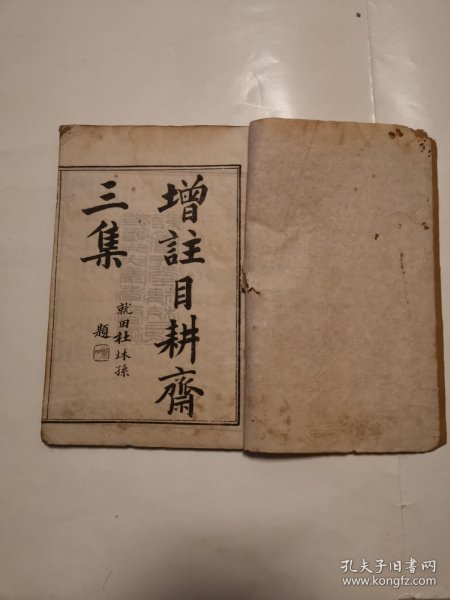 增註目耕齋
三集
就田杜秌孫
題
孔夫子旧书网
www.kongfz.com